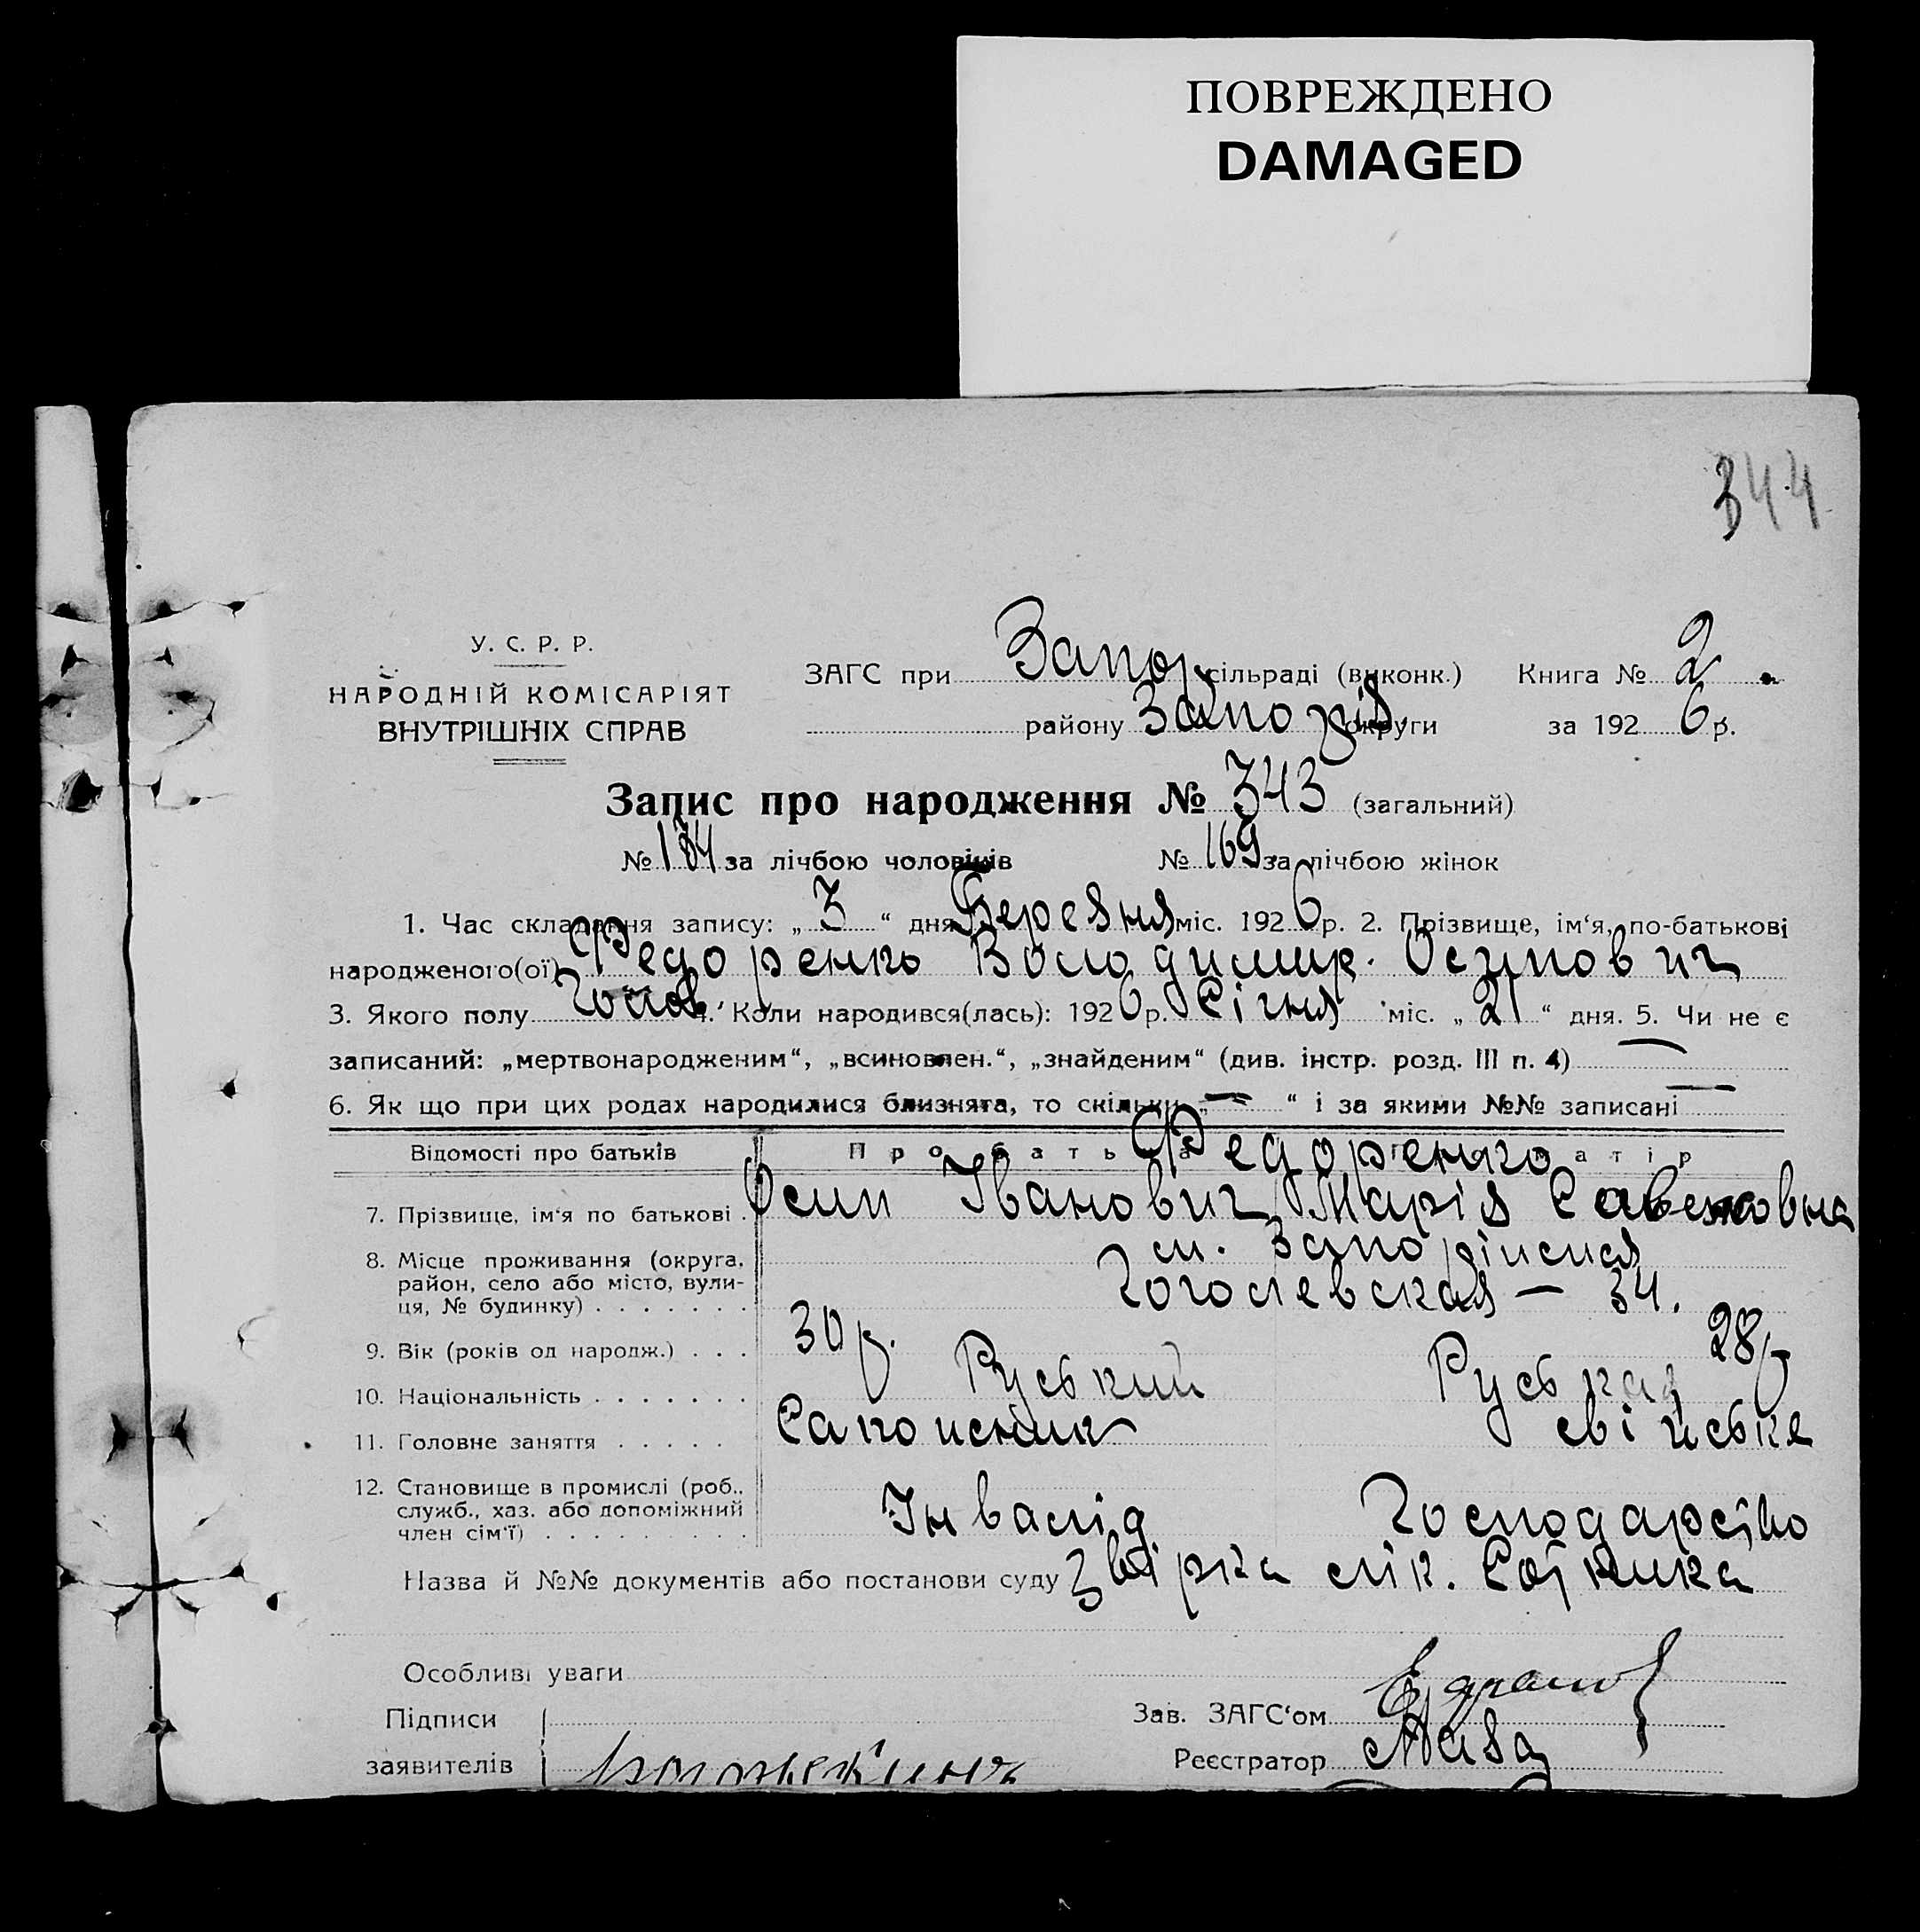 ПОВРЕЖДЕНО
DAMAGED
344
У. С. Р. Р.
НАРОДНІЙ КОМІСАРІЯТ
ВНУТРІШНІХ СПРАВ
ЗАГС при Запор сільраді (виконк.) Книга № 2
району Запоріз. округи за 1926 р.
Запис про народження № 343 (загальний)
№ 174 за лічбою чоловіків № 169 за лічбою жінок
1. Час складання запису: „ 3 “ дня Березня міс. 1926 р. 2. Прізвище, ім‘я, по-батькові
народженого(ої) Федоренко Володимир. Осипович
3. Якого полу Чолов. 4. Коли народився(лась): 1926 р. Січня міс. „ 21 “ дня. 5. Чи не є
записаний: „мертвонародженим“, „всиновлен.“, „знайденим“ (див. інстр. розд. III п. 4) —
6. Як що при цих родах народилися близнята, то скільки „ — “ і за якими №№ записані —
Відомості про батьків Про батька Про матір
Федоренко
7. Прізвище, ім‘я по батькові . Осип Іванович Марія Савеловна
8. Місце проживання (округа, район, село або місто, вули-ця, № будинку) . . . . . . . м. Запоріжжя
Гоголевская — 34.
9. Вік (років од народж.) . . . 30 р. 28 р
10. Національність . . . . . . . Руський Руська
11. Головне заняття . . . . . Сапожник свійське
12. Становище в промислі (роб., служб., хаз. або допоміжний член сім‘ї) . . . . . . . . . Інвалід Господарство
Назва й №№ документів або постанови суду Звірка лік. Сотника
Особливі уваги
Підписи
заявителів
Зав. ЗАГС‘ом
Реєстратор